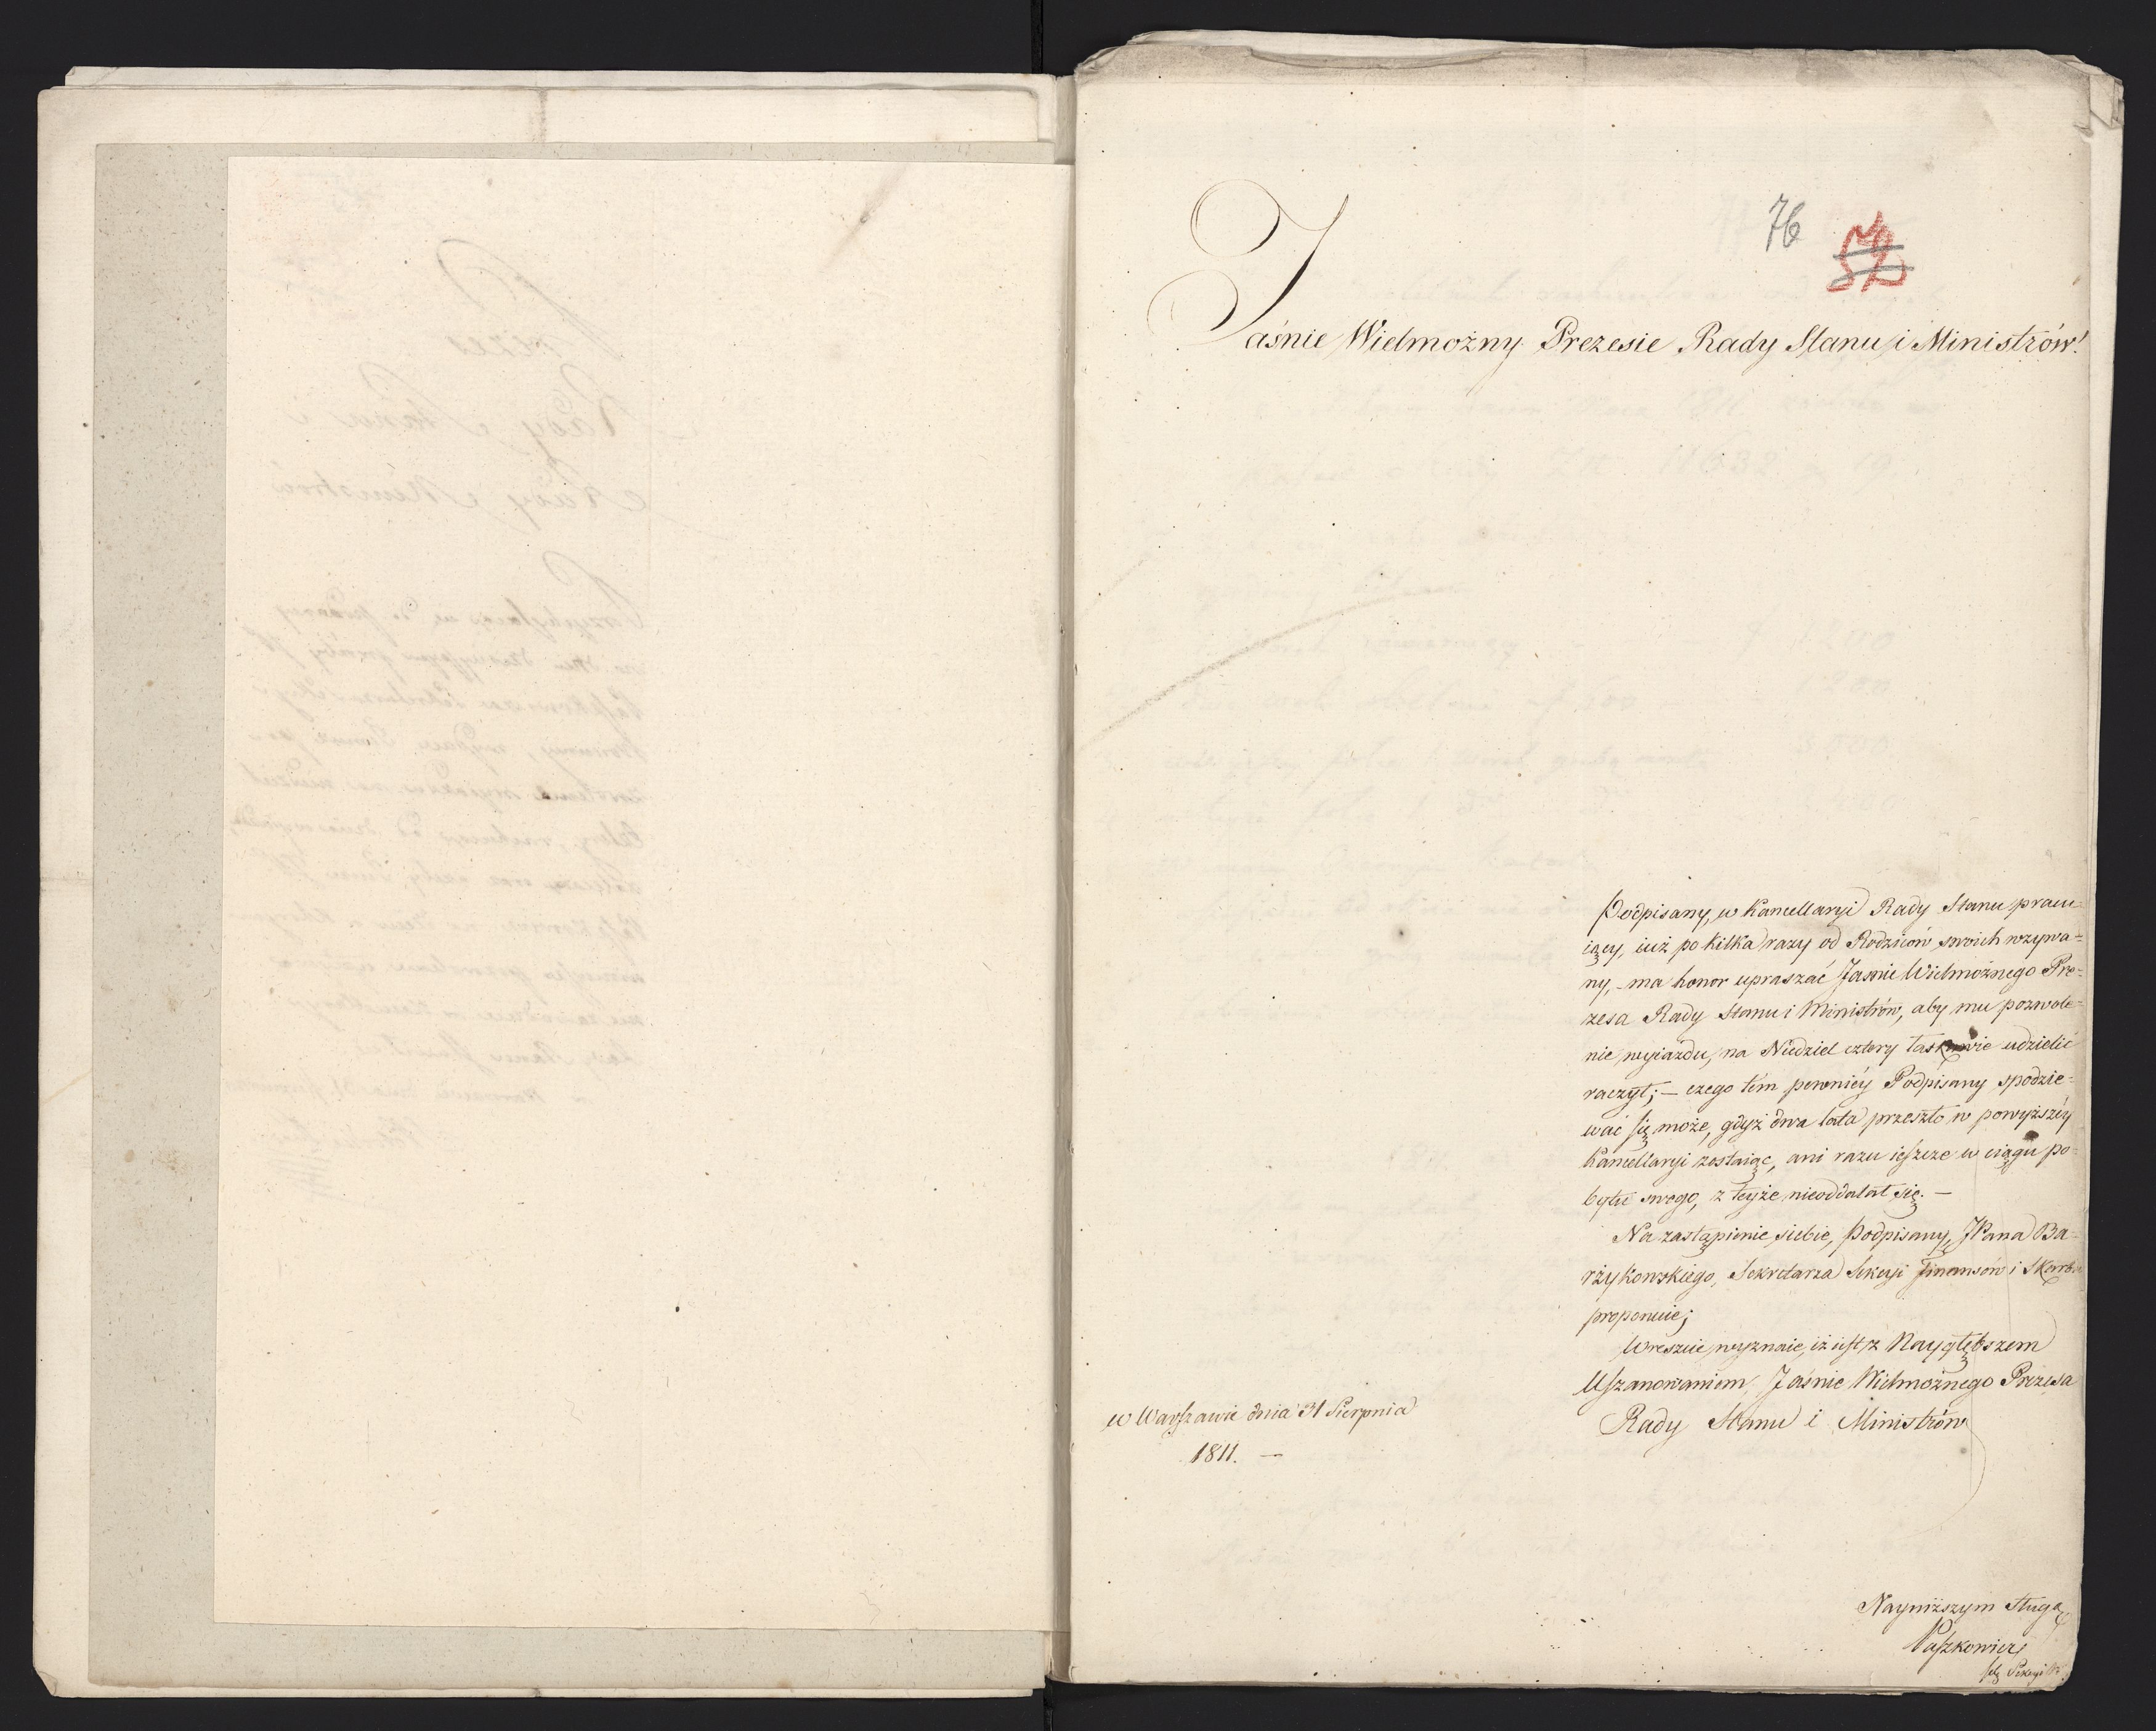 76
52
Jaśnie Wielmożny Prezesie Rady Stanu i Ministrów!
Podpisany, w Kancellaryi Rady Stanu pracu=
iący, iuż po kilka razy od Rodziców swoich wzywa=
ny, - ma honor upraszać Jaśnie Wielmożnego Pre=
zesa Rady Stanu i Ministrów, aby mu pozwole=
nie wyiazdu, na Niedziel cztery łaskawie udzielić
raczył; — czego tém pewniéy Podpisany spodzie=
wać się może, gdyż dwa lata przeszło w powyższéy
Kancellaryi zostaiąc, ani razu ieszcze w ciągu po=
bytu swego, z teyże nieoddalał się. —
Na zastąpienie siebie, Podpisany, JPana Ba=
rzykowskiego, Sekretarza Sekcyi Finansów i Skarbu
proponuie;
Wreszcie wyznaie, iż iest z Naygłębszem
Uszanowaniem, Jaśnie Wielmożnego Prezesa
Rady Stanu i Ministrów
w Warszawie dnia 31 Sierpnia
1811. —
Nayniższym Sługą
Paszkowicz
Sekcyi